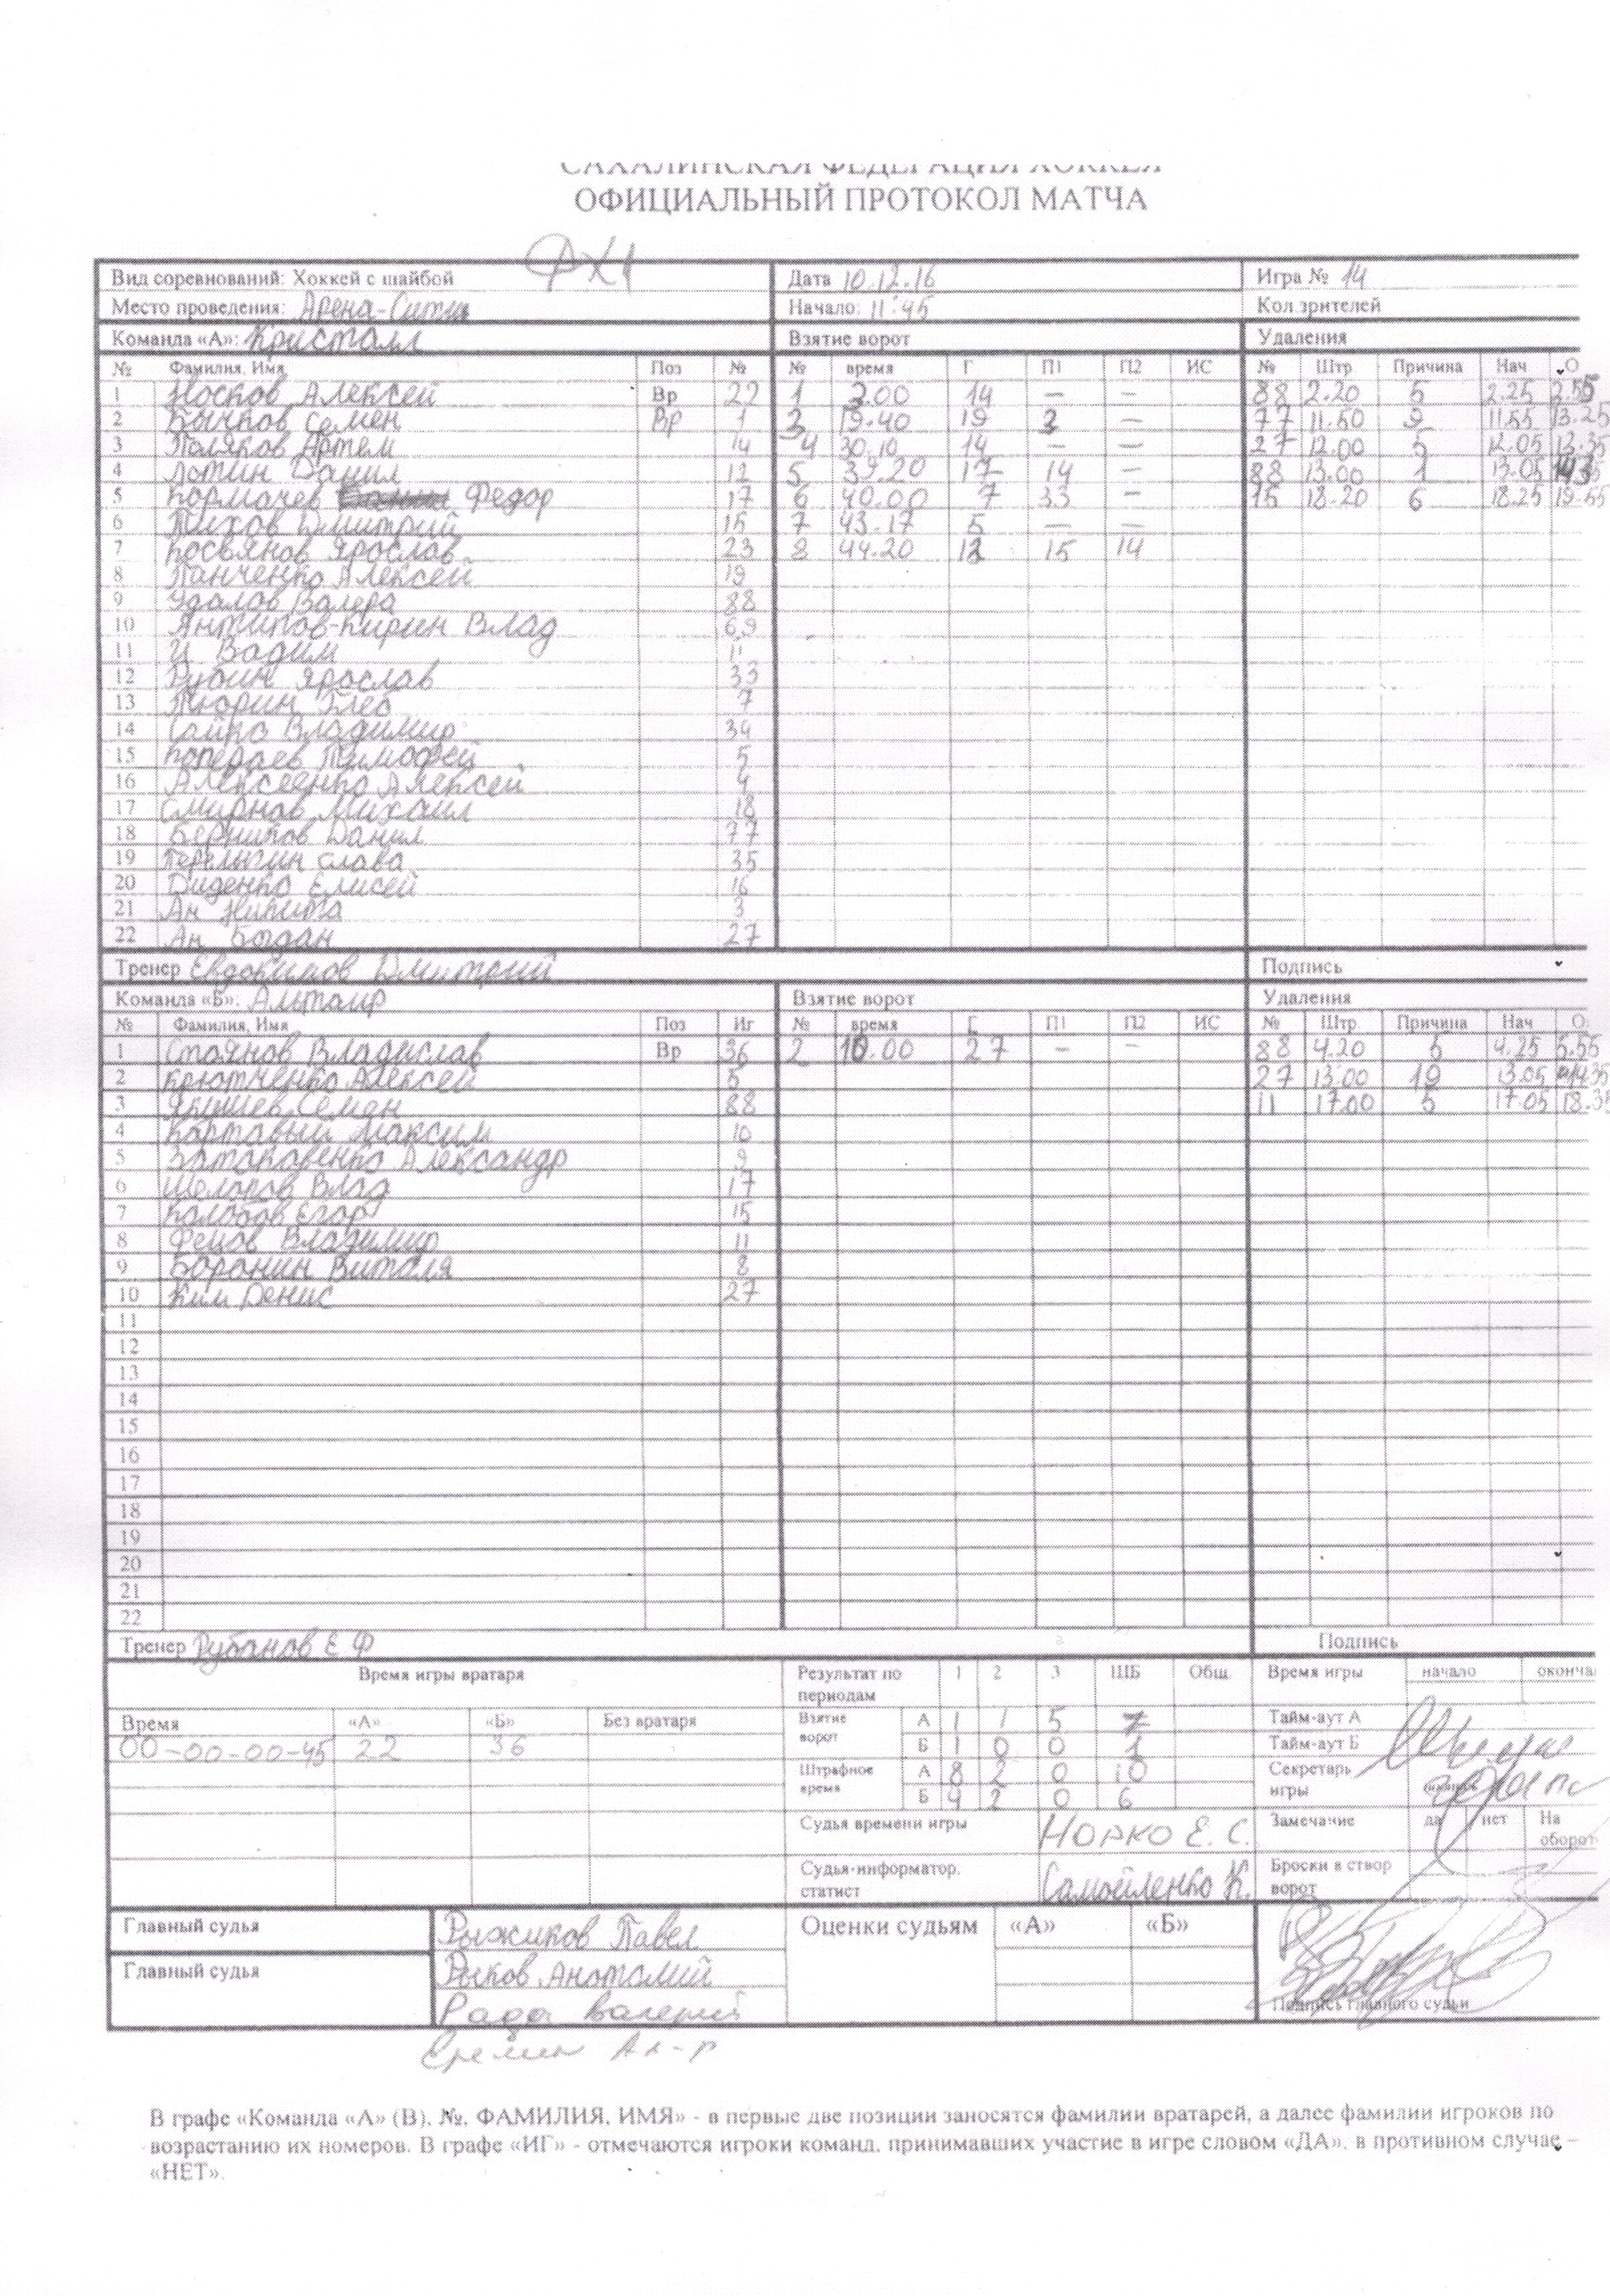 САХАЛИНСКАЯ ФЕДЕРАЦИЯ ХОККЕЯ
ОФИЦИАЛЬНЫЙ ПРОТОКОЛ МАТЧА
Вид соревнований: Хоккей с шайбой Дата 10.12.16 Игра № 14
Место проведения: Арена-Сити Начало: 11:45 Кол.зрителей
Команда «А»: Кристалл Взятие ворот Удаления
№ Фамилия, Имя Поз № № время Г П1 П2 ИС № Штр Причина Нач О
1 Носков Алексей Вр 22 1 2.00 14 — — 88 2.20 5 2.25 2.55
2 Бычков Семен Вр 1 3 19.40 19 3 — 77 11.50 9 11.55 13.25
3 Поляков Артем 14 4 30.10 14 — — 27 12.00 5 12.05 13.35
4 Лотин Данил 12 5 39.20 17 14 — 88 13.00 1 13.05
5 Кормачев Федор 17 6 40.00 7 33 — 15 18.20 6 18.25 19.55
6 Тихов Дмитрий 15 7 43.17 5 — —
7 Косьянов Ярослав 23 8 44.20 12 15 14
8 Панченко Алексей 19
9 Удалов Валера 88
10 Антипов-Кирин Влад 69
11 И Вадим 11
12 Рубин Ярослав 33
13 Тюрин Глеб 7
14 Сайко Владимир 34
15 Копераев Тимофей 5
16 Алексеенко Алексей 4
17 Смирнов Михаил 18
18 Берников Данил 77
19 Перелыгин Слава 35
20 Диденко Елисей 16
21 Ан Никита 3
22 Ан Богдан 27
Тренер Евдокимов Дмитрий Подпись
Команда «Б»: Альтаир Взятие ворот Удаления
№ Фамилия, Имя Поз Иг № время Г П1 П2 ИС № Штр Причина Нач О
1 Стоянов Владислав Вр 36 2 10.00 27 — — 88 4.20 5 4.25 5.55
2 Крютченко Алексей 5 27 13.00 19 13.05 14.35
3 Якушев Семен 88 11 17.00 5 17.05 18.35
4 Картавый Максим 10
5 Затаковенко Александр 9
6 Шелопов Влад 17
7 Колобов Егор 15
8 Фецов Владимир 11
9 Боронин Виталя 8
10 Ким Денис 27
11
12
13
14
15
16
17
18
19
20
21
22
Тренер Рубанов Е Ф Подпись
Время игры вратаря Результат по периодам 1 2 3 ШБ Общ. Время игры начало оконча
Время «А» «Б» Без вратаря Взятие ворот А 1 1 5 7 Тайм-аут А
00-00-00-45 22 36 Б 1 0 0 1 Тайм-аут Б
Штрафное время А 8 2 0 10 Секретарь игры
Б 4 2 0 6
Судья времени игры Норко Е. С. Замечание да нет На оборот
Судья-информатор, статист Самойленко К. Броски в створ ворот
Главный судья Рыжиков Павел Оценки судьям «А» «Б»
Главный судья Рыков Анатолий
Рада Валерий Подпись главного судьи
Еремин Ал-р
В графе «Команда «А» (В), №, ФАМИЛИЯ, ИМЯ» - в первые две позиции заносятся фамилии вратарей, а далее фамилии игроков по
возрастанию их номеров. В графе «ИГ» - отмечаются игроки команд, принимавших участие в игре словом «ДА», в противном случае –
«НЕТ».